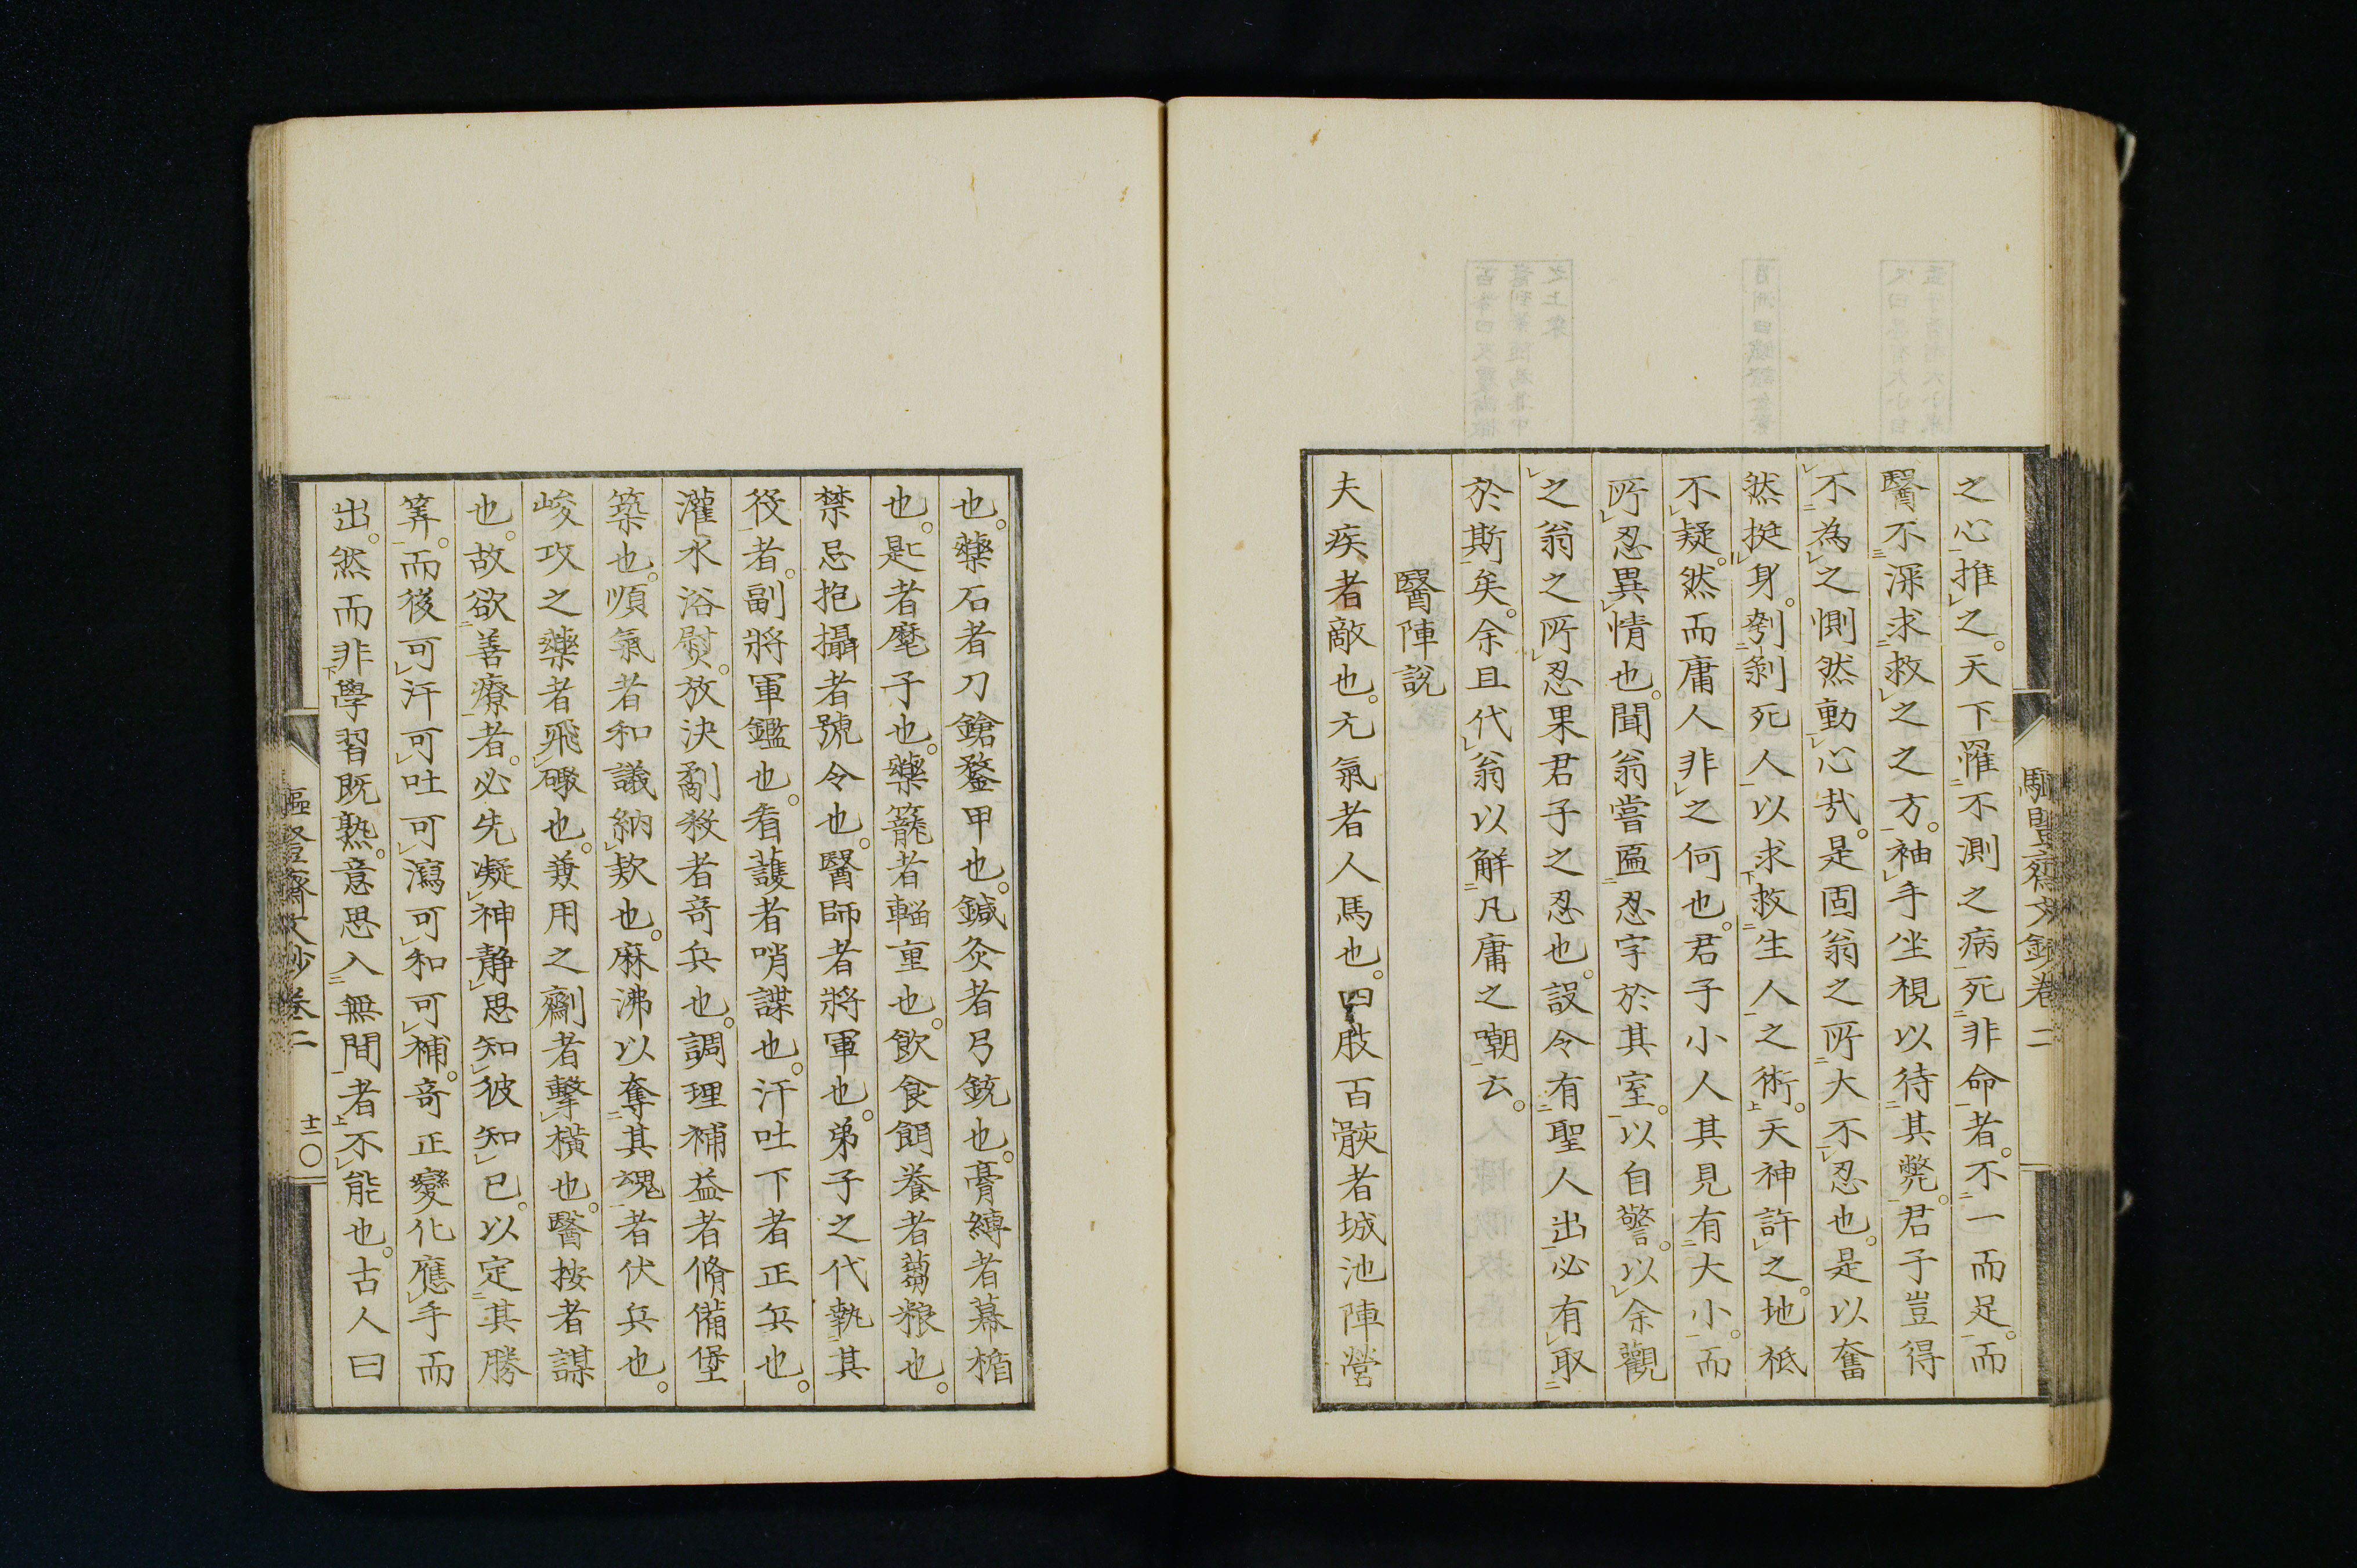 之心推之。天下罹不測之病死非命者。不一而足。而
醫不深求救之之方。袖手坐視以待其斃。君子豈得
不為之惻然動心哉。是固翁之所大不忍也。是以奮
然挺身。刳剝死人以求救生人之術。天神許之。地祇
不疑。然而庸人非之何也。君子小人其見有大小。而
所忍異情也。聞翁嘗匾忍字於其室。以自警。以余觀
之翁之所忍果君子之忍也。設令有聖人出必有取
於斯矣。余且代翁以解凡庸之嘲云。
醫陣說
夫疾者敵也。元氣者人馬也。四肢百骸者城池陣營
也。藥石者刀鎗鍪甲也。鍼灸者弓銃也。膏縛者幕楯
也。匙者麾子也。藥籠者輜重也。飲食餌養者蒭粮也。
禁忌抱攝者號令也。醫師者將軍也。弟子之代執其
役者。副將軍鑑也。看護者哨諜也。汗吐下者正兵也。
灌水浴熨。放決劀殺者奇兵也。調理補益者脩備堡
築也。順氣者和議納款也。麻沸以奪其魂者伏兵也。
峻攻之藥者飛礮也。兼用之劑者擊橫也。醫按者謀
也。故欲善療者。必先凝神靜思知彼知己。以定其勝
筭。而後可汗可吐可瀉可和可補。奇正變化應手而
出。然而非學習既熟。意思入無間者不能也。古人曰
卷二
十二